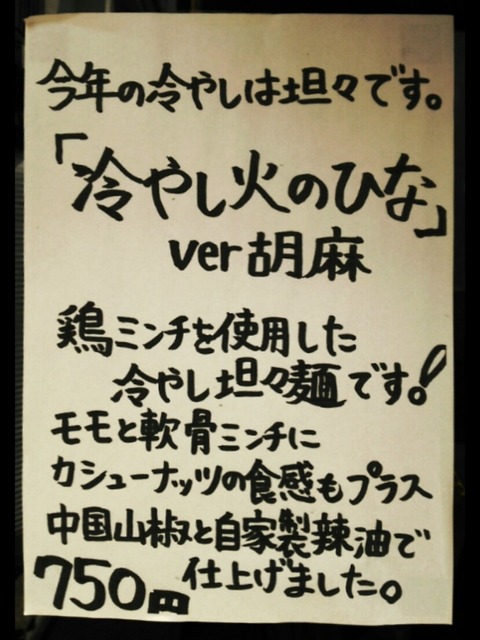 今年の冷やしは坦々です。
「冷やし火のひな」
ver胡麻
鶏ミンチを使用した
冷やし坦々麺です。!
モモと軟骨ミンチに
カシューナッツの食感もプラス
中国山椒と自家製辣油で
仕上げました。
750円